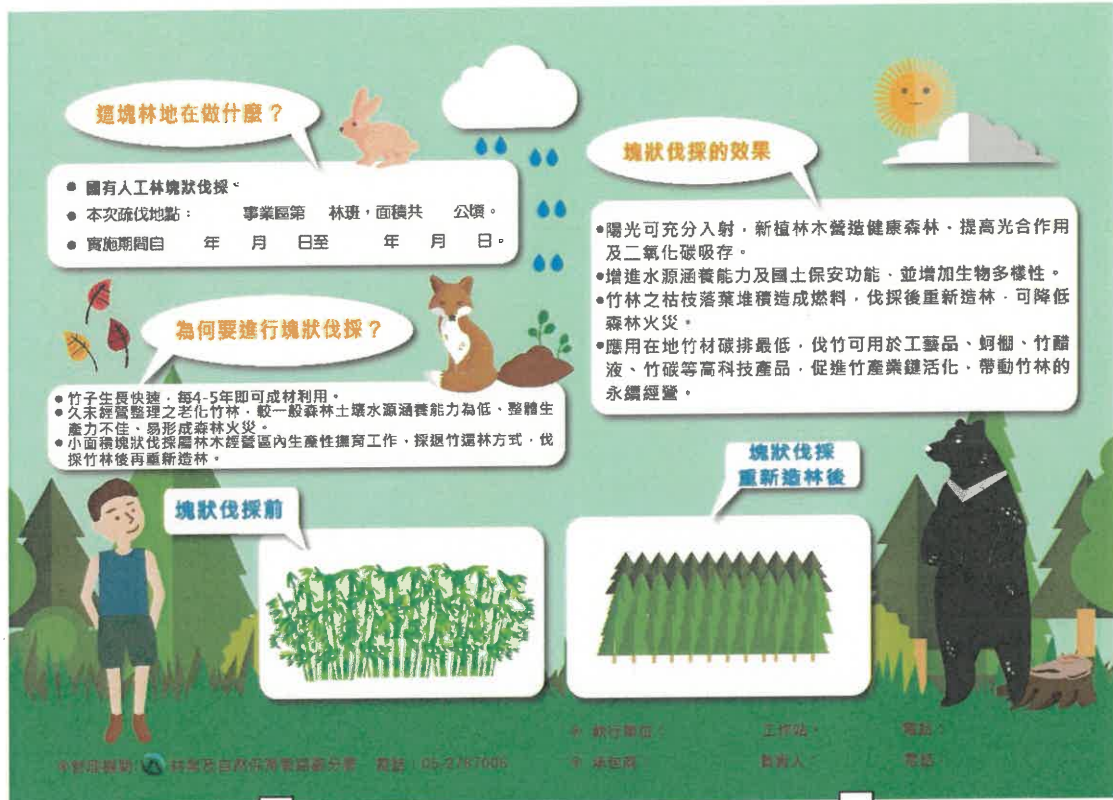 這塊林地在做什麼？
● 國有人工林塊狀伐採。
● 本次疏伐地點： 事業區第 林班，面積共 公頃。
● 實施期間自 年 月 日至 年 月 日。
為何要進行塊狀伐採？
●竹子生長快速，每4-5年即可成材利用。
●久未經營整理之老化竹林，較一般森林土壤水源涵養能力為低、整體生
產力不佳、易形成森林火災。
●小面積塊狀伐採屬林木經營區內生產性撫育工作，採退竹還林方式，伐
採竹林後再重新造林。
塊狀伐採的效果
●陽光可充分入射，新植林木營造健康森林、提高光合作用
及二氧化碳吸存。
●增進水源涵養能力及國土保安功能、並增加生物多樣性。
●竹林之枯枝落葉堆積造成燃料，伐採後重新造林，可降低
森林火災。
●應用在地竹材碳排最低，伐竹可用於工藝品、蚵棚、竹醋
液、竹碳等高科技產品，促進竹產業鏈活化、帶動竹林的
永續經營。
塊狀伐採前
塊狀伐採
重新造林後
執行單位： 工作站： 電話：
林業及自然保育署嘉義分署 電話：05-2787006
承包商： 負責人： 電話：